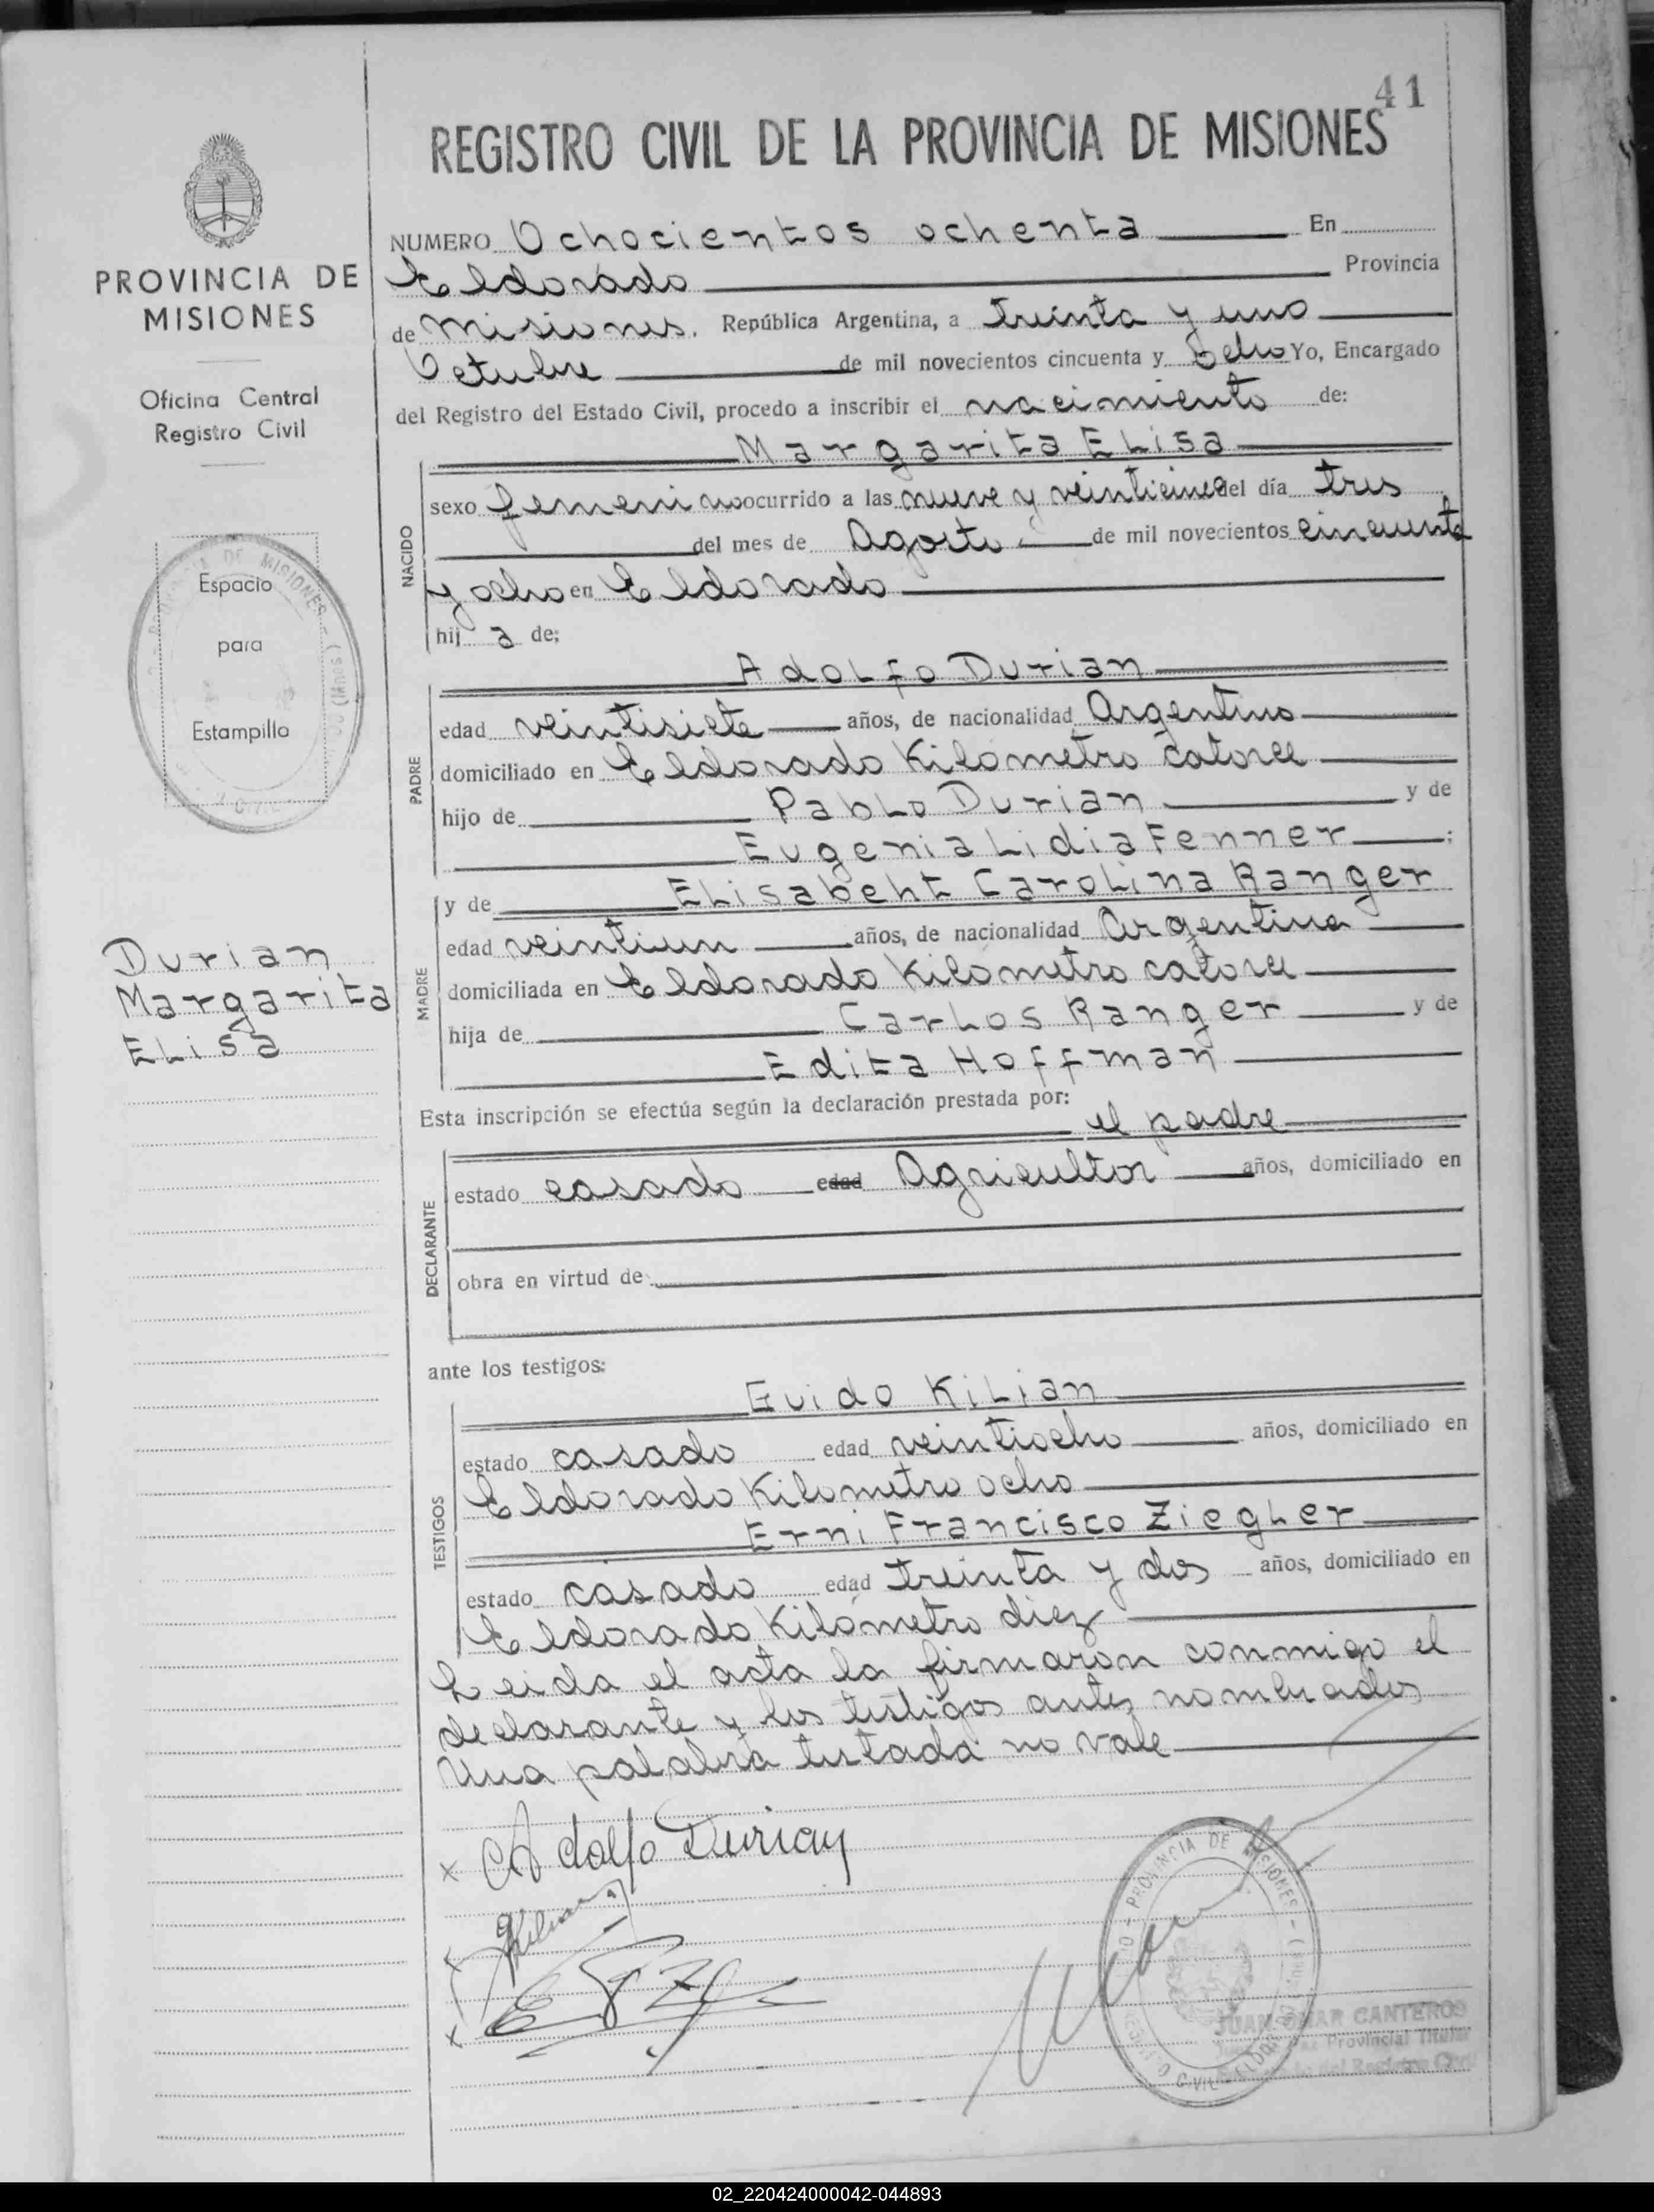 41
REGISTRO CIVIL DE LA PROVINCIA DE MISIONES
PROVINCIA DE
MISIONES
Oficina Central
Registro Civil
Espacio
para
Estampilla
Durian
Margarita
Elisa
NUMERO Ochocientos ochenta En
Eldorado Provincia
de Misiones. República Argentina, a treinta y uno
Octubre de mil novecientos cincuenta y Ocho Yo, Encargado
del Registro del Estado Civil, procedo a inscribir el nacimiento de:
Margarita Elisa
NACIDO
sexo femenino ocurrido a las nueve y veinticinco del día tres
del mes de Agosto de mil novecientos cincuenta
y ocho en Eldorado
hij a de:
Adolfo Durian
PADRE
edad veintisiete años, de nacionalidad Argentino
domiciliado en Eldorado Kilómetro catorce
hijo de Pablo Durian y de
Eugenia Lidia Fenner ;
y de Elisabeht Carolina Ranger
MADRE
edad veintiun años, de nacionalidad Argentina
domiciliada en Eldorado Kilómetro catorce
hija de Carlos Ranger y de
Edita Hoffman
Esta inscripción se efectúa según la declaración prestada por: el padre
DECLARANTE
estado casado edad Agricultor años, domiciliado en
obra en virtud de
ante los testigos:
Guido Kilian
TESTIGOS
estado casado edad veintiocho años, domiciliado en
Eldorado Kilometro ocho
Erni Francisco Ziegler
estado casado edad treinta y dos años, domiciliado en
Eldorado Kilómetro diez
Leida el acta la firmaron conmigo el
declarante y los testigos antes nombrados
Una palabra testada no vale
x Adolfo Durian
PROVINCIA DE MISIONES
JUAN OMAR CANTEROS
Provincial Titular
del Registro Civil
02_220424000042-044893